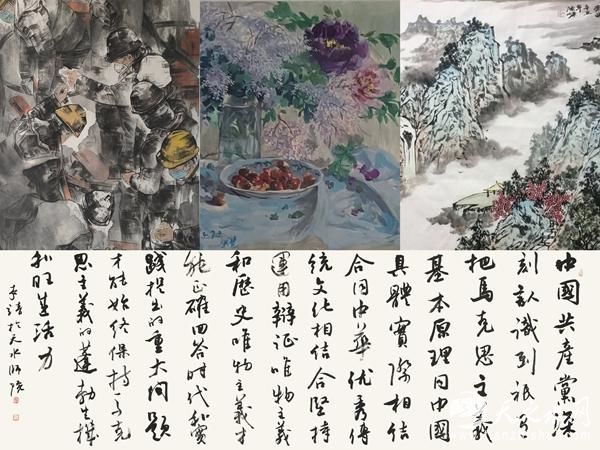 中國共產黨深
刻認識到祇有
把馬克思主義
基本原理同中國
具體實際相結
合同中華優秀傳
統文化相結合堅持
運用辯證唯物主義
和歷史唯物主義才
能正確回答時代和實
踐提出的重大問題
才能始終保持馬克
思主義的蓬勃生機
和旺盛活力
於天水師院